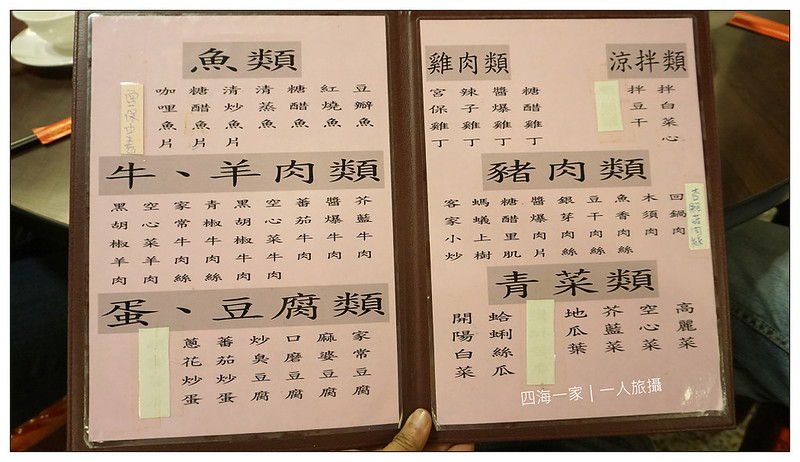 魚類
豆瓣魚
紅燒魚
糖醋魚
清蒸魚
清炒魚片
糖醋魚片
咖哩魚片
牛、羊肉類
芥藍牛肉
醬爆牛肉
蕃茄牛肉
空心菜牛肉
黑胡椒牛肉
青椒牛肉絲
家常牛肉絲
空心菜羊肉
黑胡椒羊肉
蛋、豆腐類
家常豆腐
麻婆豆腐
口磨豆腐
炒臭豆腐
蕃茄炒蛋
蔥花炒蛋
涼拌類
拌白菜心
拌豆干
雞肉類
糖醋雞丁
醬爆雞丁
辣子雞丁
宮保雞丁
豬肉類
回鍋肉
木須肉
魚香肉絲
豆干肉絲
銀芽肉絲
醬爆肉片
糖醋里肌
螞蟻上樹
客家小炒
青菜類
高麗菜
空心菜
芥藍菜
地瓜葉
蛤蜊絲瓜
開陽白菜
四海一家 | 一人旅攝